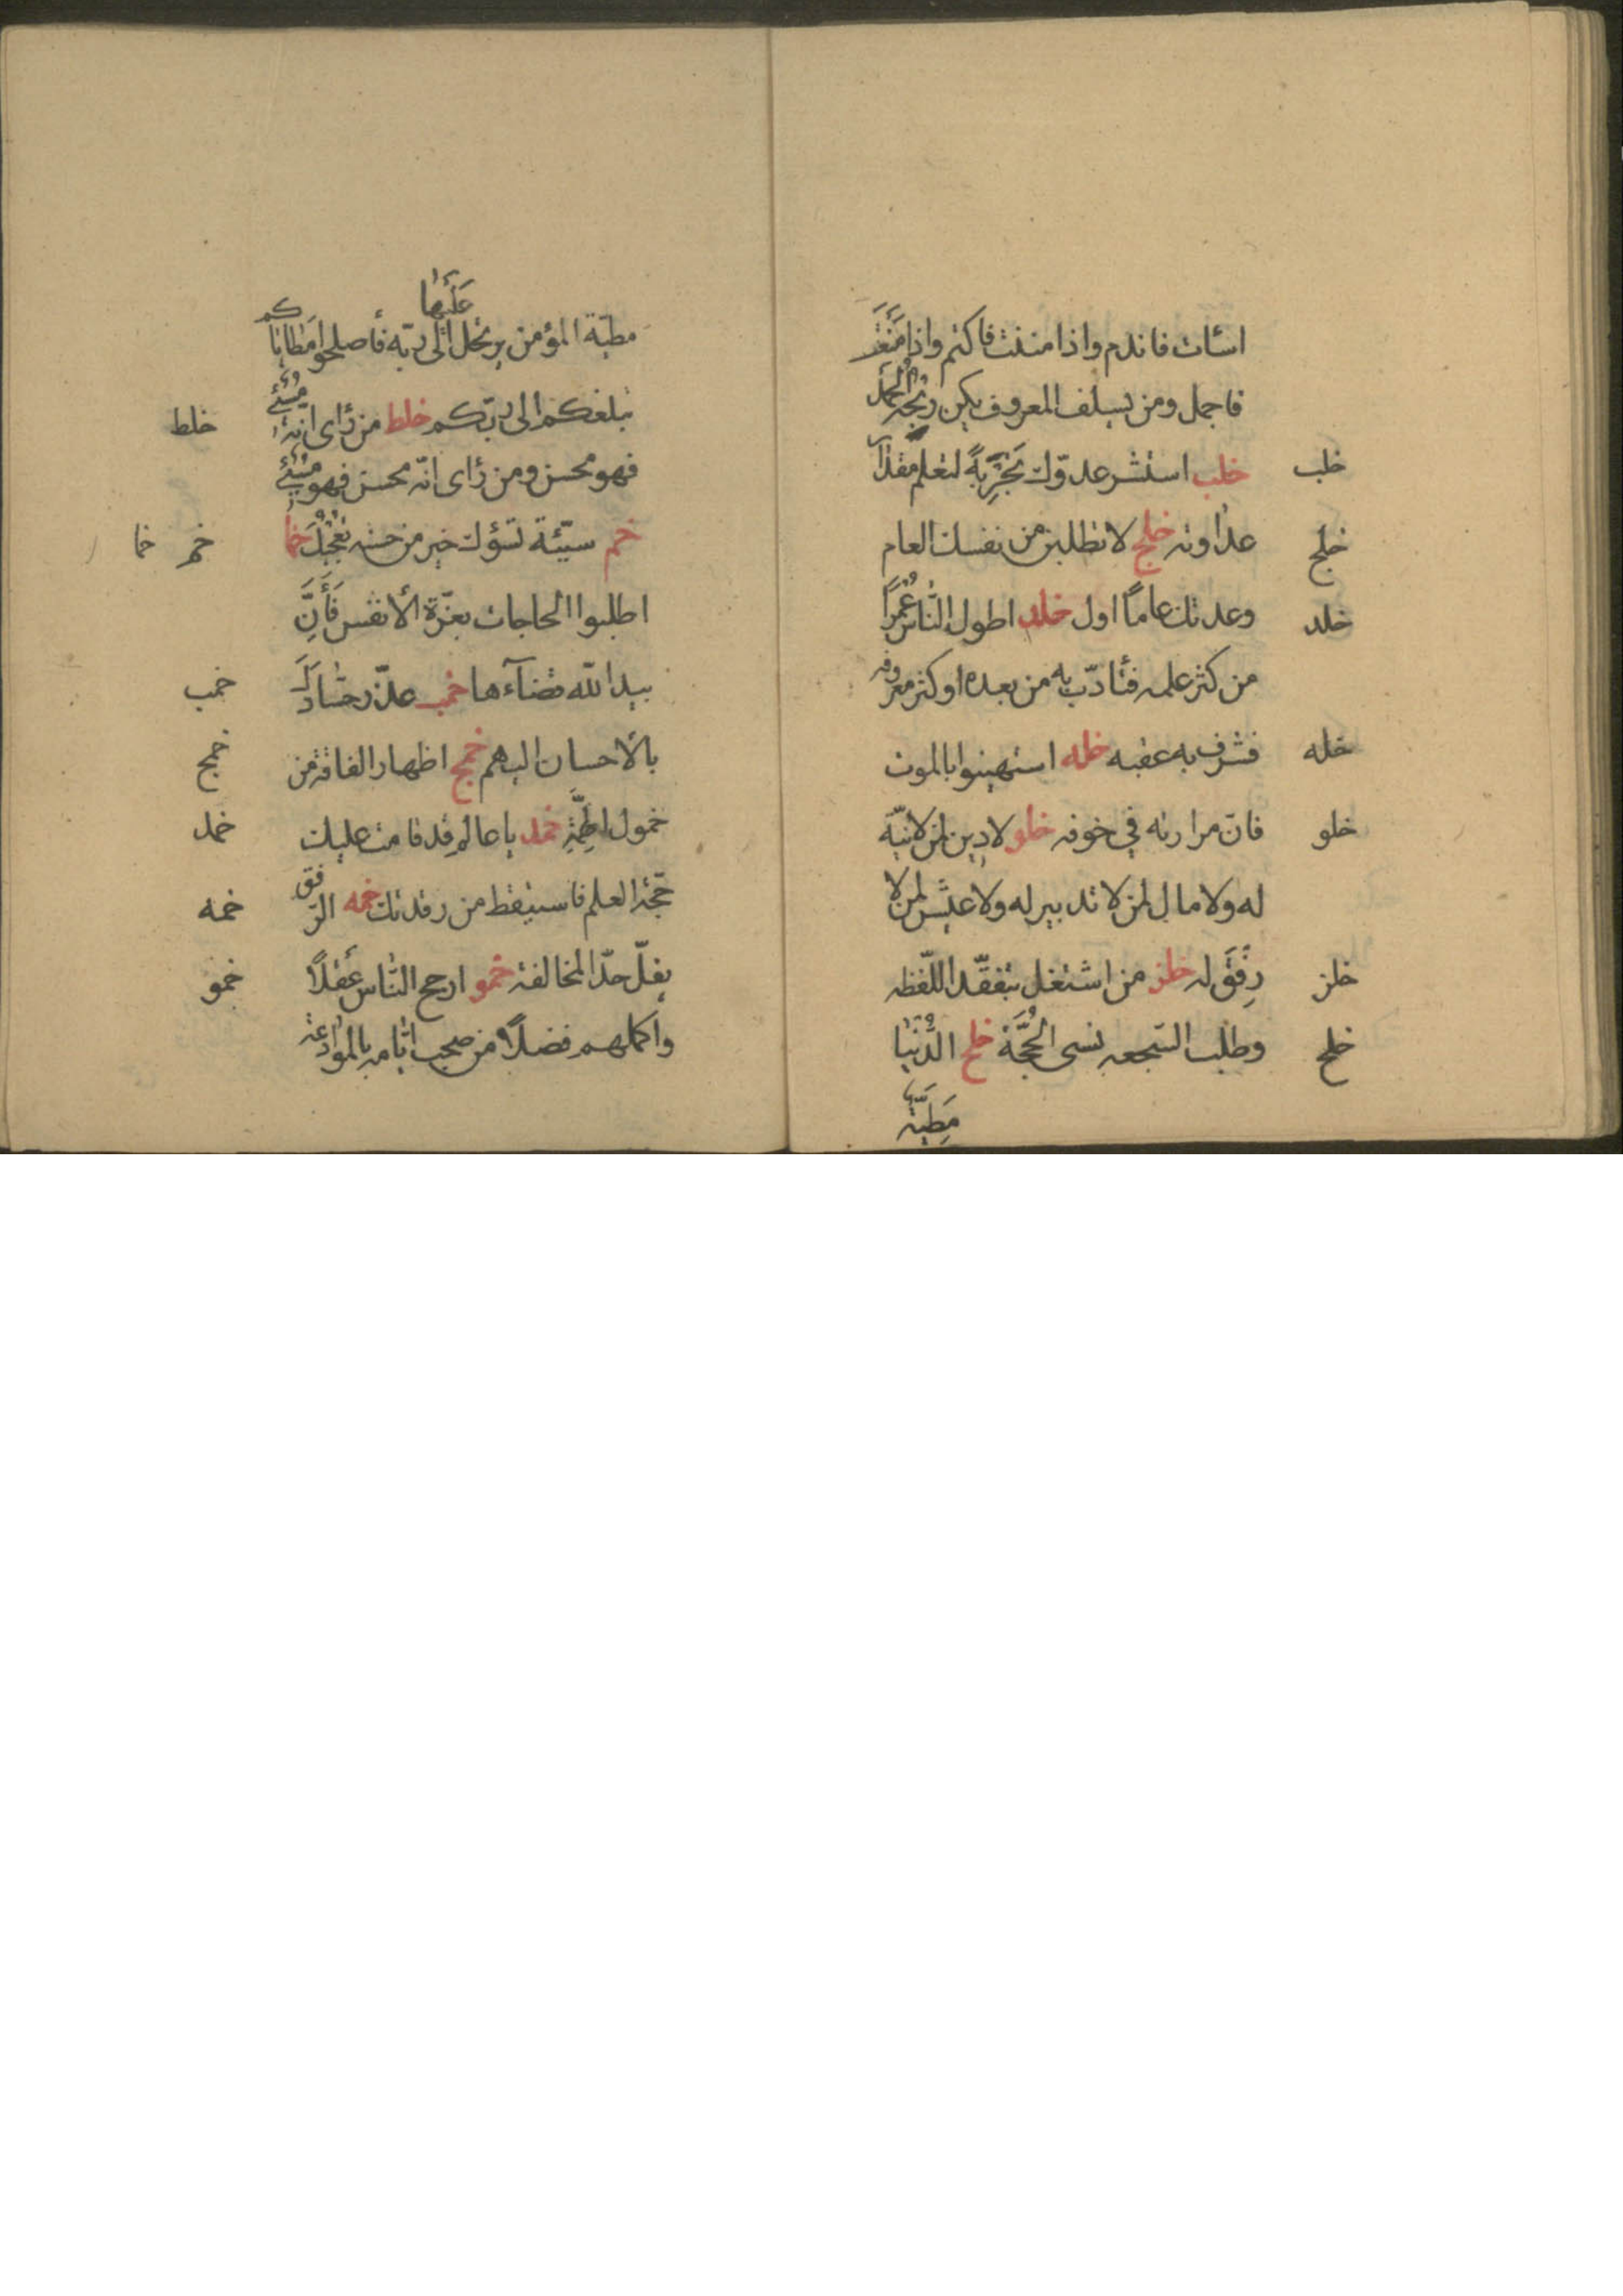 اسأت فاندم واذا مننت فاكتم واذا منعت
فاجمل ومن يسلف المعروف يكن ربحه الحمد
خلب خلب استشر عدوّك تَجْرِبَةً لتعلم مقدار
خلج عداوته خلج لا تطلبن من نفسك العام
خلد وعدتك عامًا اول خلد اطول النّاس عُمُرًا
من كثر علمه فتأدّب به من بعده او كثر معروفه
خله فشرف به عقبه خله استهينوا بالموت
خلو فانّ مرارته في خوفه خلو لا دين لمن لا نيّة
له ولا مال لمن لا تدبير له ولا عيش لمن لا
خلز رِفْقَ له خلز من اشتغل بتفقّد اللّفظه
خلح وطلب السّجعه نسى الحُجَّةَ خلح الدُّنيا
مَطِيّة
مطيّة المؤمن عَلَيْها يرتحل الى ربّه فأصلحوا مَطاياكم
خلط تبلغكم الى ربّكم خلط من رأى انّه مُسِيْئ
فهو محسن ومن رأى انّه محسن فهو مُسِيْئ
خم خما خم سيّئة تسؤك خير من حسنه تُعْجِبُكَ خما
اطلبوا الحاجات بعزّة الأنفس فَأِنَّ
خمب بيد الله قضآءها خمب عذّر حسّادك
خمج بالأحسان اليهم خمج اظهار الفاقة من
خمد خمول الهِمَّةِ خمد يا عالم قد قامت عليك
خمه حجّة العلم فاستيقظ من رقدتك خمه الرّفق
خمو يفلّ حدّ المخالفة خمو ارجح النّاس عَقْلًا
واكملهم فضلًا من صحب ايّامه بالموادعة